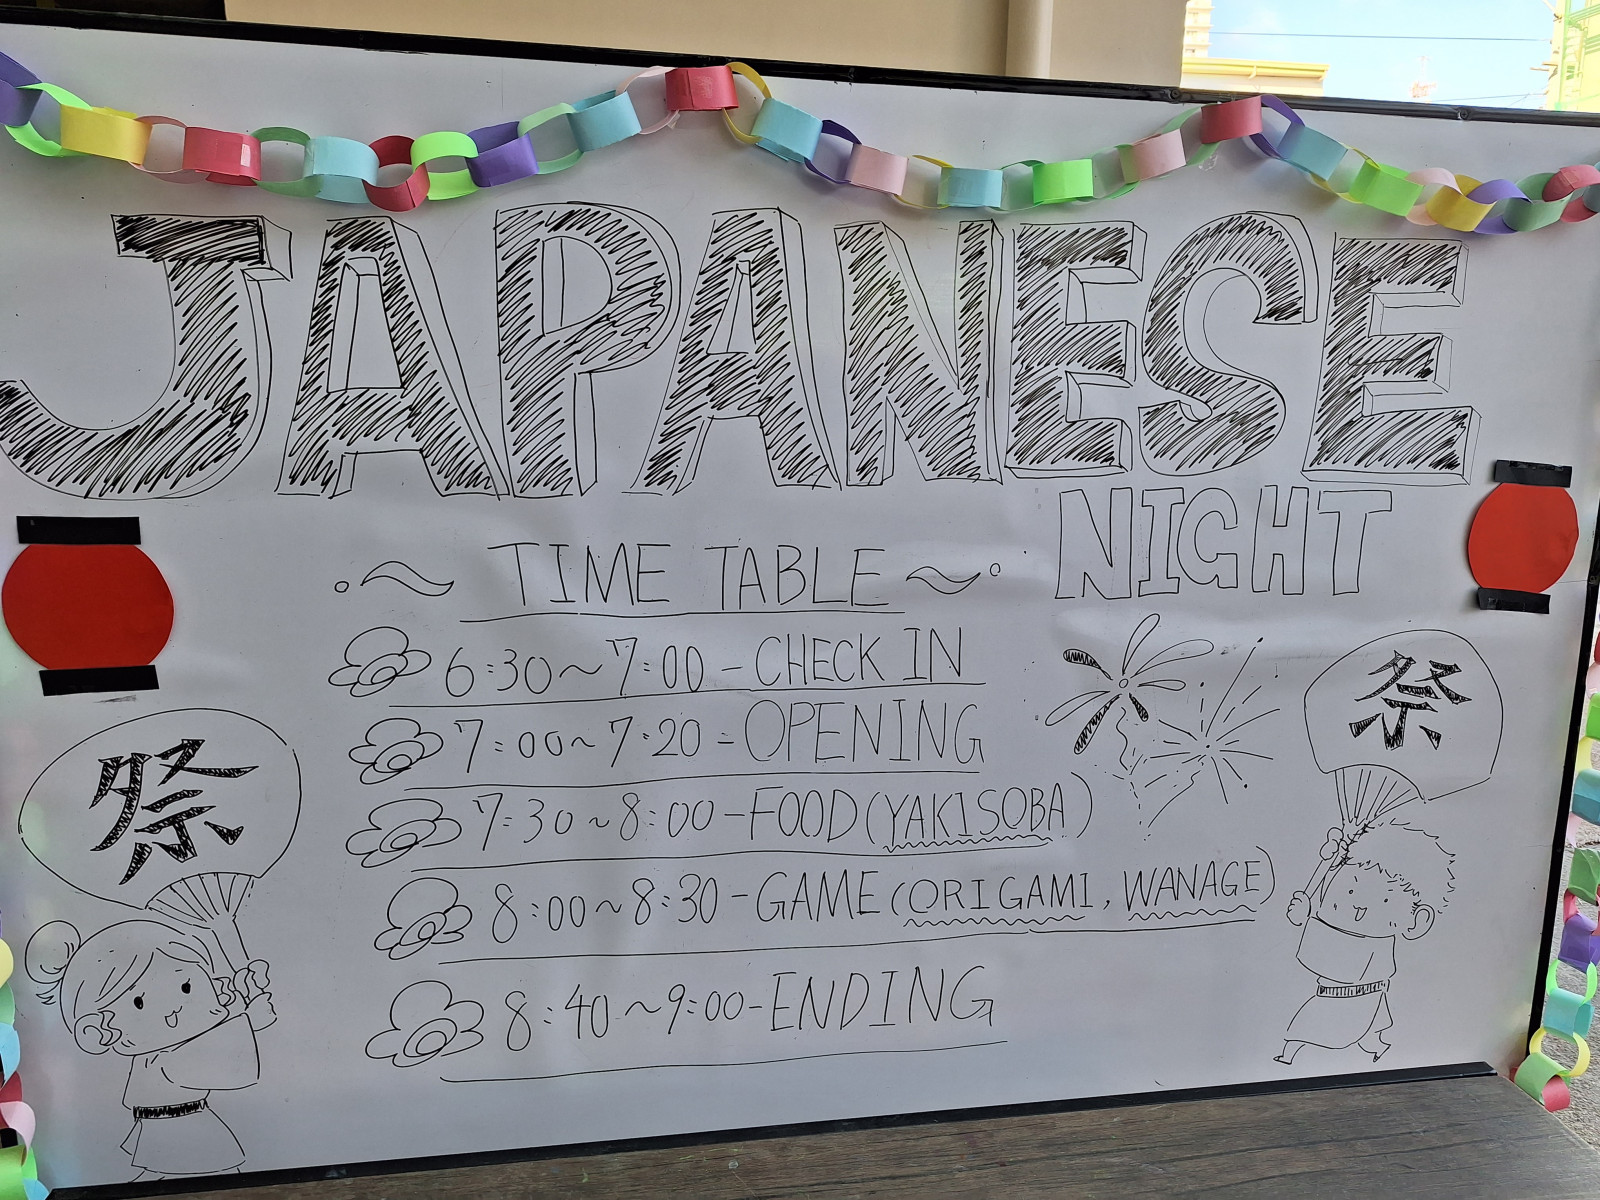 JAPANESE
NIGHT
~ TIME TABLE ~
6:30~7:00-CHECK IN
7:00~7:20=OPENING
7:30~8:00-FOOD(YAKISOBA)
8:00~8:30-GAME(ORIGAMI, WANAGE)
8:40~9:00-ENDING
祭
祭